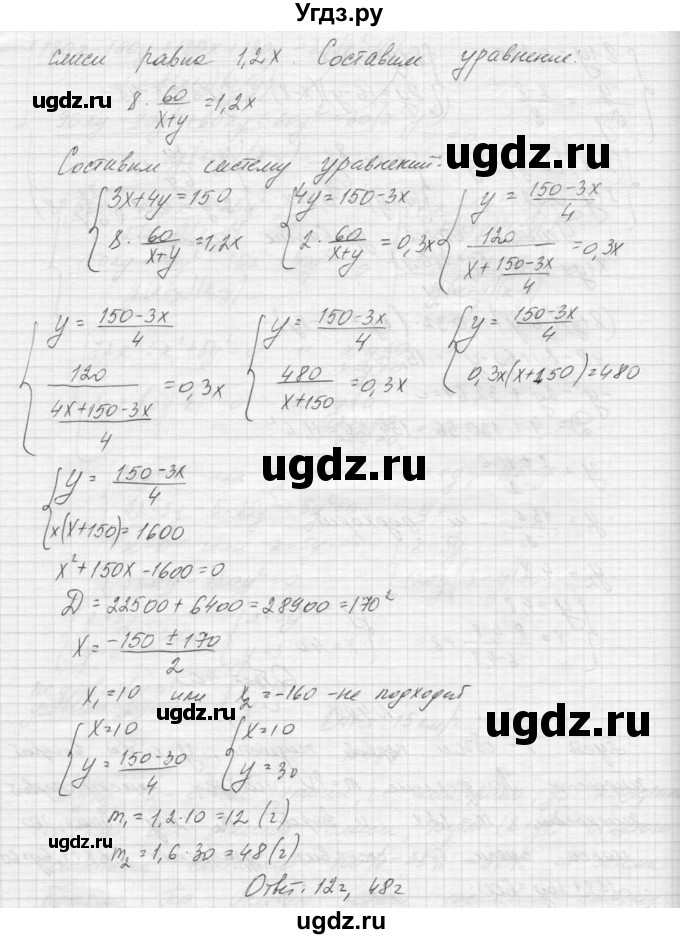 Угдз.ру
смеси равна 1,2x. Составим уравнение:
ugdz.ru 8 · 60/(x+y) = 1,2x
ugdz.ru
Составим систему уравнений:
{3x+4y=150 {4y=150-3x {y = (150-3x)/4
{8 · 60/(x+y) = 1,2x {2 · 60/(x+y) = 0,3x {120/(x + (150-3x)/4) = 0,3x
{y = (150-3x)/4 {y = (150-3x)/4 {y = (150-3x)/4
{120/((4x+150-3x)/4) = 0,3x {480/(x+150) = 0,3x {0,3x(x+150)=480
ugdz.ru
{y = (150-3x)/4
{x(x+150)=1600
x²+150x-1600=0
D = 22500+6400=28900=170²
x = (-150 ± 170)/2
x₁=10 или x₂=-160 - не подходит
ugdz.ru
ugdz.ru
{x=10 {x=10
{y = (150-30)/4 {y=30
m₁=1,2·10=12 (г)
ugdz.ru m₂=1,6·30=48(г)
Ответ: 12г, 48г
ugdz.ru